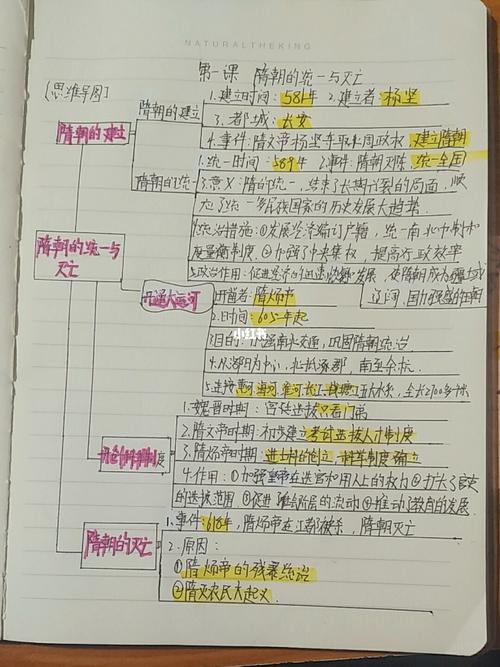 NATURALTHEKING
第一课 隋朝的统一与灭亡
[思维导图]
隋朝的建立
隋朝的建立
1.建立时间：581年 2.建立者：杨坚
3.都城：长安
4.事件：隋文帝杨坚夺取北周政权，建立隋朝
隋朝的统一
1.统一时间：589年 2.事件：隋朝灭陈，统一全国
3.意义：隋的统一，结束了长期分裂的局面，顺
应了统一多民族国家的历史发展大趋势
4.统治措施：①发展经济编订户籍，统一南北币制和
度量衡制度 ②加强了中央集权，提高行政效率
5.政治作用：促进经济的迅速发展，使隋朝成为疆域
辽阔，国力强盛的王朝
隋朝的统一与
灭亡
开通大运河
1.开凿者：隋炀帝
2.时间：605年起
3.目的：加强南北交通，巩固隋朝统治
4.以洛阳为中心，北抵涿郡，南至余杭
5.连接 海河 黄河 淮河 长江 五大水系，全长2700多千米
制度
1.魏晋时期：官员选拔只看门第
2.隋文帝时期：初步建立考试选拔人才制度
3.隋炀帝时期：进士科的创立，科举制度确立
4.作用：①加强皇帝在选官和用人上的权力 ②扩大了官吏
的选拔范围 ③促进 社会阶层的流动 ④推动了教育的发展
隋朝的灭亡
1.事件：618年，隋炀帝在江都被杀，隋朝灭亡
2.原因：
①隋炀帝的残暴统治
②隋末农民大起义
小红书